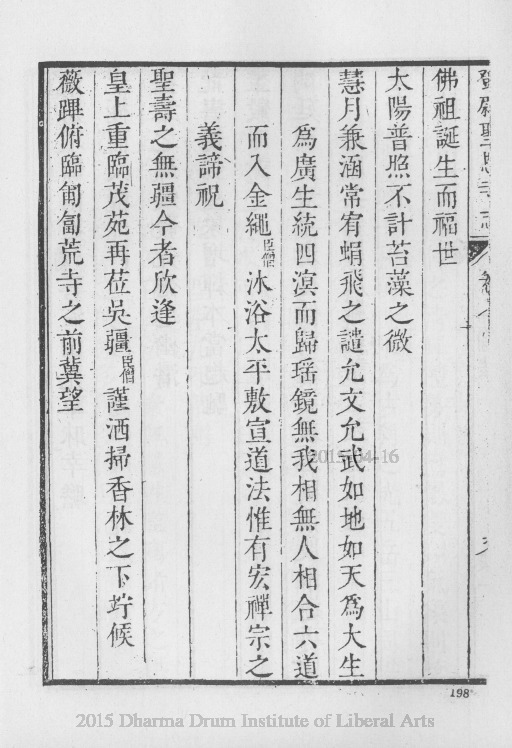 佛祖誕生而福世
太陽普照不計苔藻之微
慧月兼涵常宥蜎飛之譴允文允武如地如天為大生
為廣生統四溟而歸瑶鏡無我相無人相合六道
而入金繩臣僧沐浴太平敷宣道法惟有宏禪宗之
義諦祝
聖壽之無疆今者欣逢
皇上重臨茂苑再莅吳疆臣僧謹洒掃香林之下竚候
薇蹕俯臨匍匐荒寺之前冀望
2015-04-16
198
2015 Dharma Drum Institute of Liberal Arts